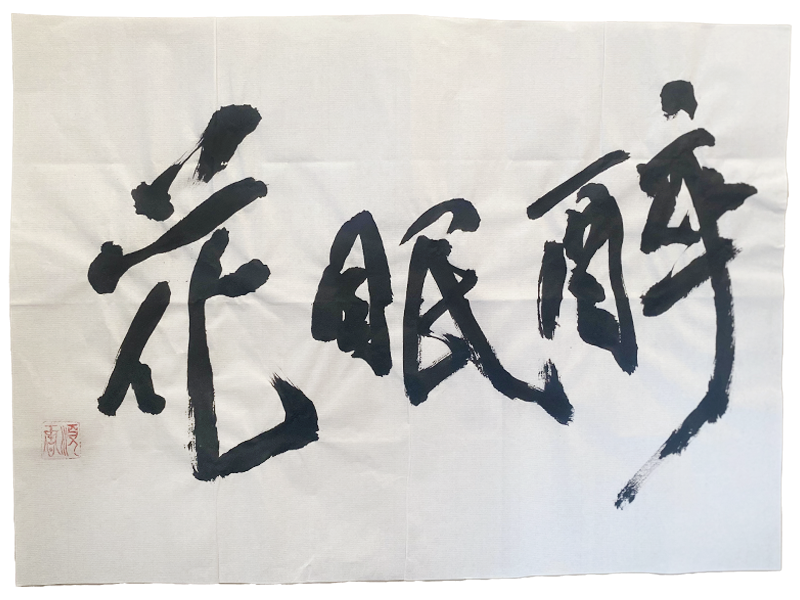 醉眠花